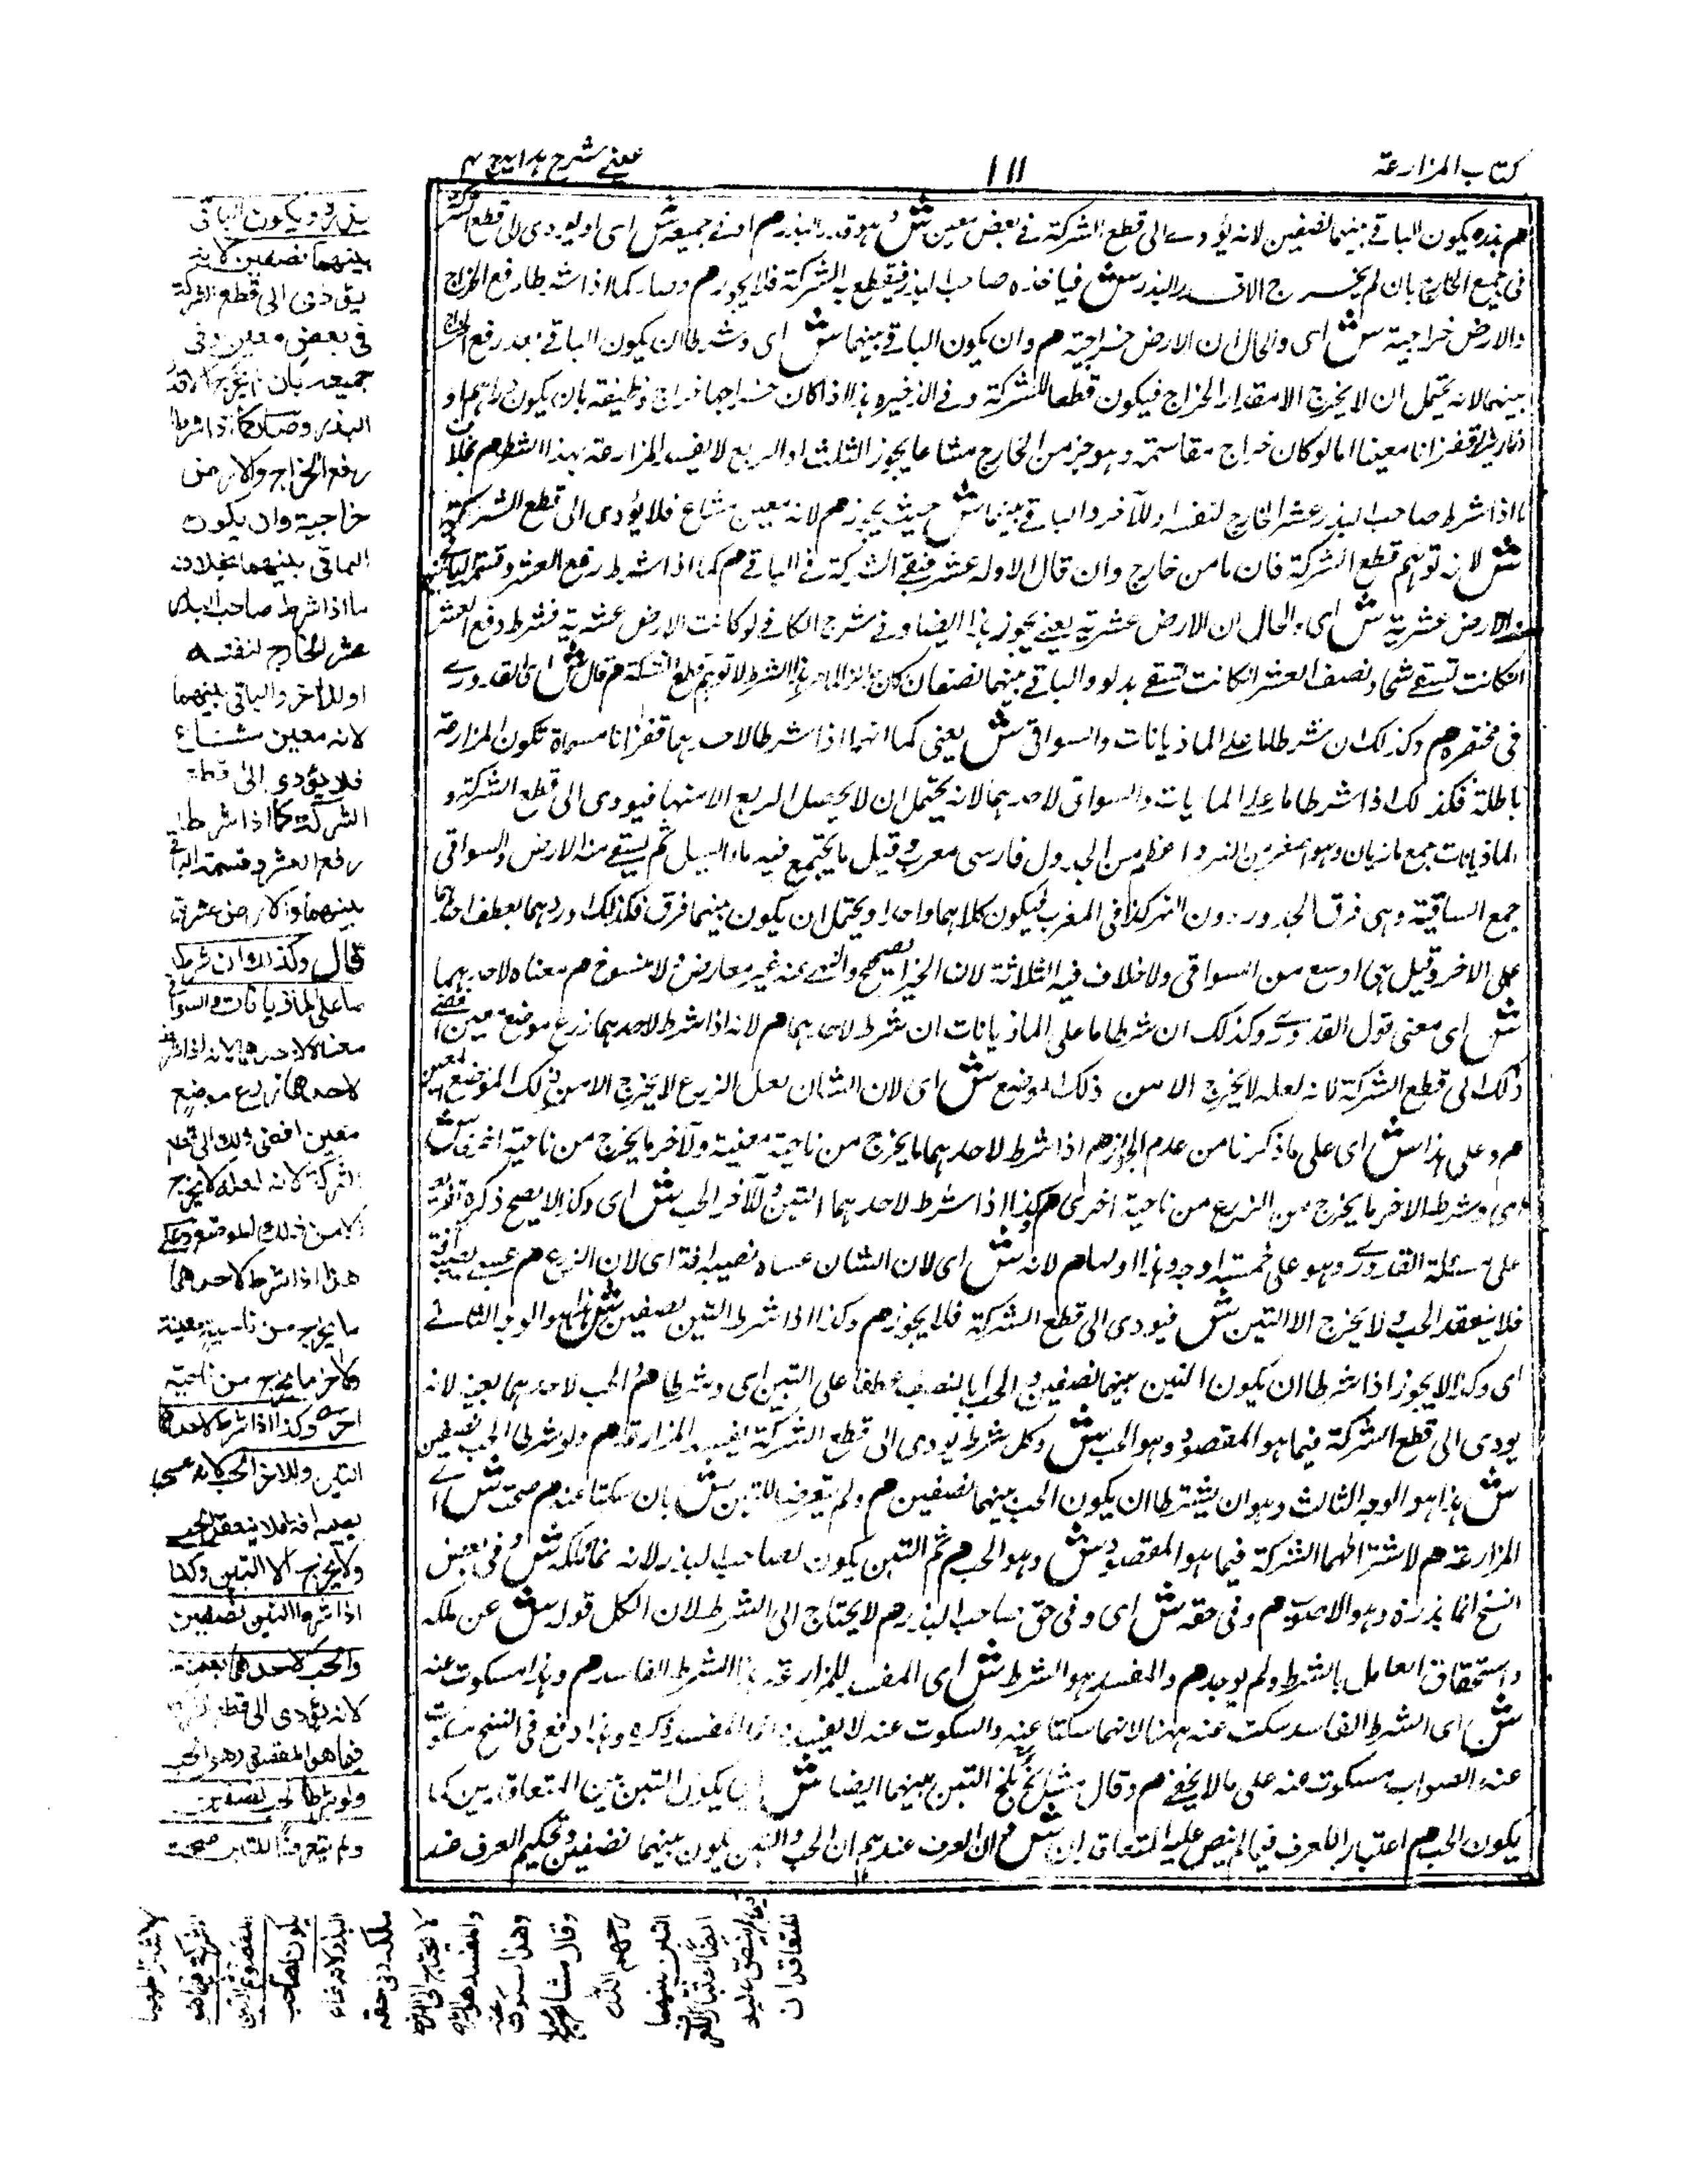 كتاب المزارعة
١١١
عيني شرح هدايه ج ٤
م بذره يكون الباقي بينهما نصفين لانه يؤدي الى قطع الشركة في بعض معين ش وهو قدر البذر م او في جميعه ش اى او يودى الى قطع الشركة
فى جميع الخارج بان لم يخرج الا قدر البذر ش فيأخذه صاحب البذر فيقطع به الشركة فلا يجوز م وصار كما اذا شرطا رفع الخراج
والارض خراجية ش اى والحال ان الارض خراجية م وان يكون الباقي بينهما ش اى وشرطا ان يكون الباقي بعد رفع الخراج
بينهما لانه يحتمل ان لا يخرج الا مقدار الخراج فيكون قطعا للشركة وفي الذخيره هذا اذا كان خراجها خراج وظيفة بان يكون دراهم او
قفزانا معينا اما لو كان خراج مقاسمة وهو جزء من الخارج مشاعا يجوز الثلث او الربع لا يفسد المزارعة بهذا الشرط م بخلاف
ما اذا شرط صاحب البذر عشر الخارج لنفسه او للآخر والباقي بينهما ش حيث يجوز م لانه معين مشاع فلا يؤدى الى قطع الشركة
ش لانه توهم قطع الشركة فان ما من خارج وان قال الا وله عشر فتبقى الشركة في الباقي م كما اذا شرط رفع العشر وقسمة الباقي بينهما
والارض عشرية ش اى والحال ان الارض عشرية يعني يجوز هذا ايضا وفي شرح الكافي لو كانت الارض عشرية فشرط دفع العشر
ان كانت تسقى سيحا ونصف العشر ان كانت تسقى بدلو والباقي بينهما نصفان كان هذا الشرط لا توهم قطع الشركة م قال ش اى القدوري
فى مختصره م وكذلك ان شرطا ما على الماذيانات والسواقى ش يعنى كما انهما اذا شرطا لاحدهما قفزانا مسماة تكون المزارعة
باطلة فكذلك اذا شرطا ما على الماذيانات والسواقى لاحدهما لانه يحتمل ان لا يحصل الربع الا منها فيودى الى قطع الشركة و
الماذيانات جمع ماذيان وهو اصغر من النهر واعظم من الجدول فارسى معرب وقيل ما يجتمع فيه ماء السيل ثم يسقى منه الارض والسواقى
جمع الساقية وهى فوق الجدول ودون النهر كذا فى المغرب فيكون كلاهما واحدا ويحتمل ان يكون بينهما فرق فكذلك اوردهما بعطف احدهما
على الاخر وقيل هى اوسع من السواقى ولا خلاف فيه الثلاثة لان الخبر الصحيح والنهى عنه غير معارض ولا منسوخ م معناه لاحدهما
ش اى معنى قول القدوري وكذلك ان شرطا ما على الماذيانات ان شرط لاحدهما م لانه اذا شرط لاحدهما زرع موضع معين افضى
ذلك الى قطع الشركة لانه لعله لا يخرج الا من ذلك الموضع ش اى لان الشان لعل الزرع لا يخرج الا من ذلك الموضع المعين
م وعلى هذا ش اى على ما ذكرنا من عدم الجواز م اذا شرط لاحدهما ما يخرج من ناحية معينة ولآخر ما يخرج من ناحية اخرى ش
اى وشرط الاخر ما يخرج من الزرع من ناحية اخرى م وكذا اذا شرط لاحدهما التبن وللآخر الحب ش اى وكذا لا يصح ذكره تفريعا
على مسئلة القدوري وهو على خمسة اوجه وهذا اولها م لانه ش اى لان الشان عساه نصيبه افة اى لان الزرع م عسى يصيبه آفة
فلا ينعقد الحب ولا يخرج الا التبن ش فيودى الى قطع الشركة فلا يجوز م وكذا اذا شرط التبن نصفين ش هذا هو الوجه الثاني
اى وكذا لا يجوز اذا شرطا ان يكون التبن بينهما نصفين م والحب بالنصب عطفا على التبن اى وشرطا م الحب لاحدهما بعينه لانه
يودى الى قطع الشركة فيما هو المقصود وهو الحب ش وكل شرط يودى الى قطع الشركة يفسد المزارعة م ولو شرطا الحب نصفين
ش هذا هو الوجه الثالث وهو ان يشترطا ان يكون الحب بينهما نصفين م ولم يتعرضا للتبن ش بان سكتا عنه م صحت ش اى
المزارعة م لاشتراطهما الشركة فيما هو المقصود ش وهو الحب م ثم التبن يكون لصاحب البذر لانه نماء ملكه ش وفى بعض
النسخ انما بذره وهو الاصح م وفى حقه ش اى وفى حق صاحب البذر م لا يحتاج الى الشرط لان الكل قوله ش عن ملكه
واستحقاق العامل بالشرط ولم يوجد م والمفسد هو الشرط ش اى المفسد للمزارعة هذا الشرط الفاسد م وهذا سكوت عنه
ش اى الشرط الفاسد سكت عنه ههنا لانهما سكتا عنه والسكوت عنه لا يفسد وانما المفسد ذكره وهذا وقع فى النسخ سكوت
عنه والصواب مسكوت عنه على ما لا يخفى م وقال مشايخ بلخ التبن بينهما ايضا ش اى يكون التبن بين المتعاقدين كما
يكون الحب م اعتبارا للعرف فيما لم ينص عليه المتعاقدان ش فان العرف عندهم ان الحب والتبن يكون بينهما نصفين وتحكيم العرف عند
بذره ويكون الباقى
بينهما نصفين لانه
يؤدى الى قطع الشركة
فى بعض معين وفى
جميعه بان لم يخرج الا قدر
البذر وصار كما اذا شرطا
رفع الخراج والارض
خراجية وان يكون
الباقى بينهما بخلاف
ما اذا شرط صاحب البذر
عشر الخارج لنفسه
او للآخر والباقى بينهما
لانه معين مشاع
فلا يؤدى الى قطع
الشركة كما اذا شرطا
رفع العشر وقسمة الباقى
بينهما والارض عشرية
قال وكذلك ان شرطا
ما على الماذيانات والسواقى
معناه لاحدهما لانه اذا شرط
لاحدهما زرع موضع
معين افضى ذلك الى قطع
الشركة لانه لعله لا يخرج
الا من ذلك الموضع وعلى
هذا اذا شرط لاحدهما
ما يخرج من ناحية معينة
ولآخر ما يخرج من ناحية
اخرى وكذا اذا شرط لاحدهما
التبن وللاخر الحب لانه عسى
يصيبه افة فلا ينعقد الحب
ولا يخرج الا التبن وكذا
اذا شرطا التبن نصفين
والحب لاحدهما بعينه
لانه يؤدى الى قطع الشركة
فيما هو المقصود وهو الحب
ولو شرطا الحب نصفين
ولم يتعرضا للتبن صحت
لاشتراطهما
الشركة فيما هو
المقصود ثم التبن
يكون لصاحب
البذر لانه نماء
ملكه وفى حقه
لا يحتاج الى الشرط
والمفسد هو الشرط
وهذا سكوت عنه
وقال مشايخ بلخ
رحمهم الله
التبن بينهما
ايضا اعتبارا للعرف
فيما لم ينص عليه
المتعاقدان